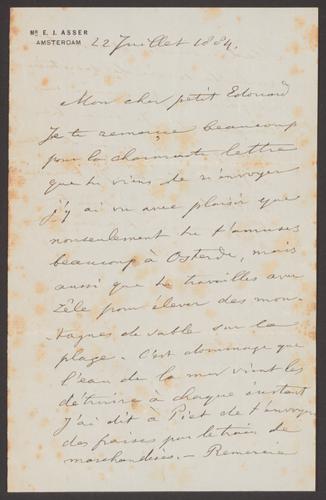 Mr. E. J. ASSER
AMSTERDAM
22 Juillet 1884.
Mon cher petit Edouard
Je te remercie beaucoup
pour la charmante lettre
que tu viens de m'envoyer
j'y ai vu avec plaisir que
nonseulement tu t'amuses
beaucoup à Ostende, mais
aussi que tu travailles avec
zèle pour élever des mon-
tagnes de sable sur la
plage. C'est dommage que
l'eau de la mer vient les
détruire à chaque instant
J'ai dit à Piet de t'envoyer
des fraises par le train de
marchandises. — Remercie